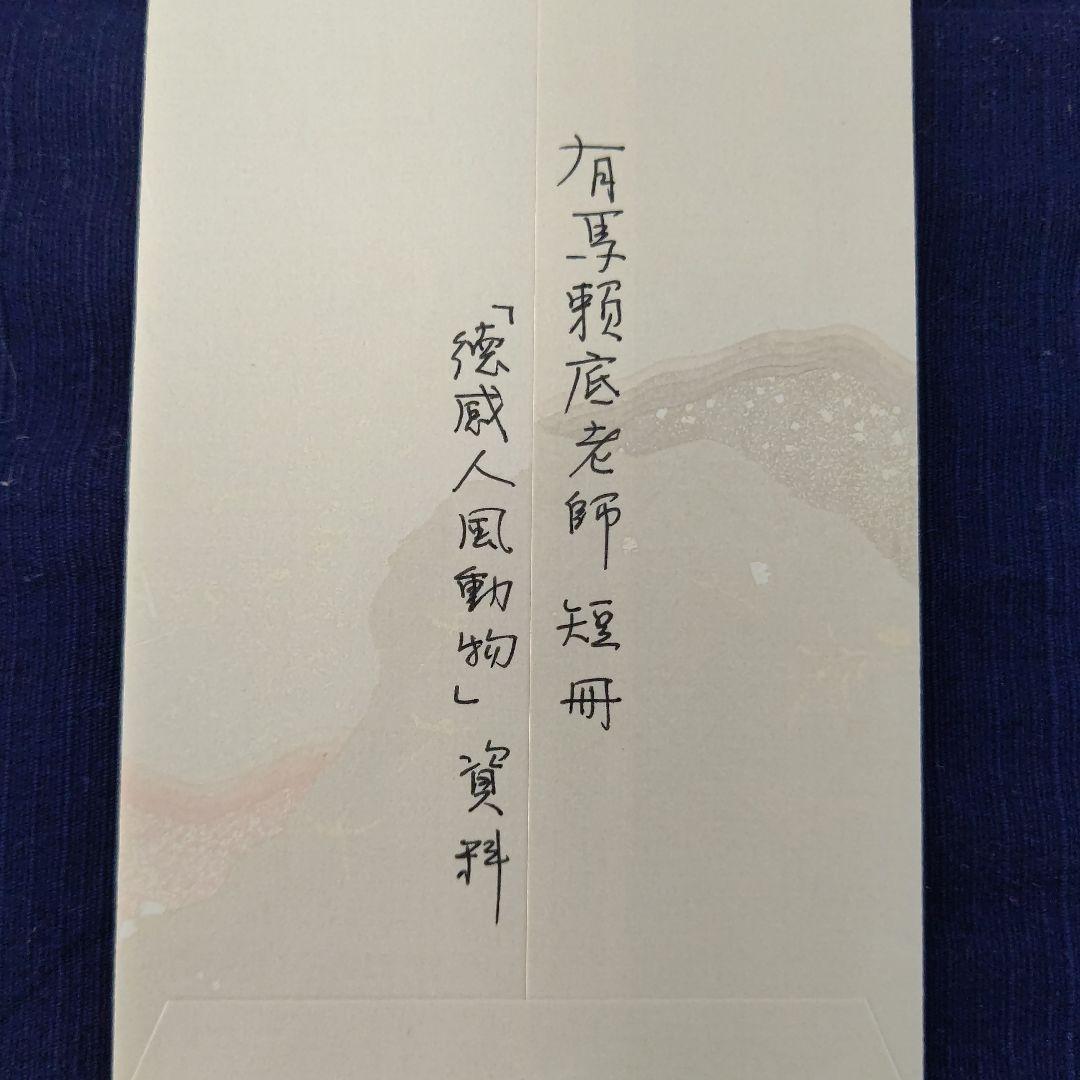 有馬賴底老師 短冊
「德感人風動物」資料